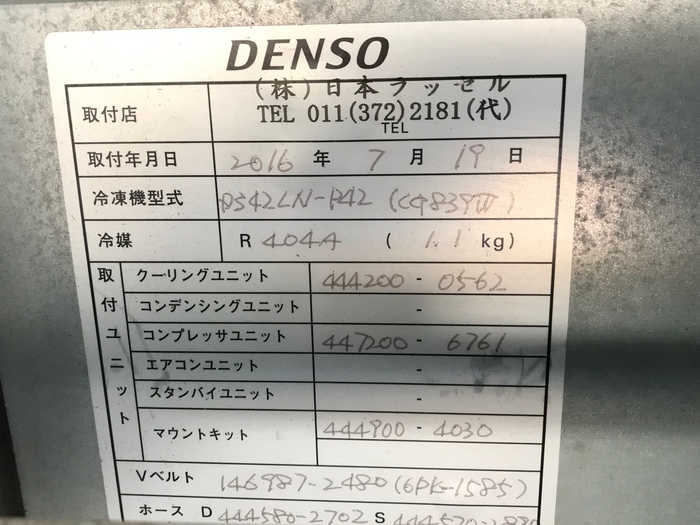 DENSO
(株)日本ラッセル
取付店 TEL 011(372)2181(代)
TEL
取付年月日 2016 年 7 月 19 日
冷凍機型式 DS42LN-P42 (CG839W)
冷媒 R 404A ( 1.1 kg)
取付ユニット
クーリングユニット 444200 - 0562
コンデンシングユニット -
コンプレッサユニット 447200 - 6761
エアコンユニット -
スタンバイユニット -
マウントキット 444900 - 4030
Vベルト 146987-2480 (6PK-1585)
ホース D 444580-2702 S